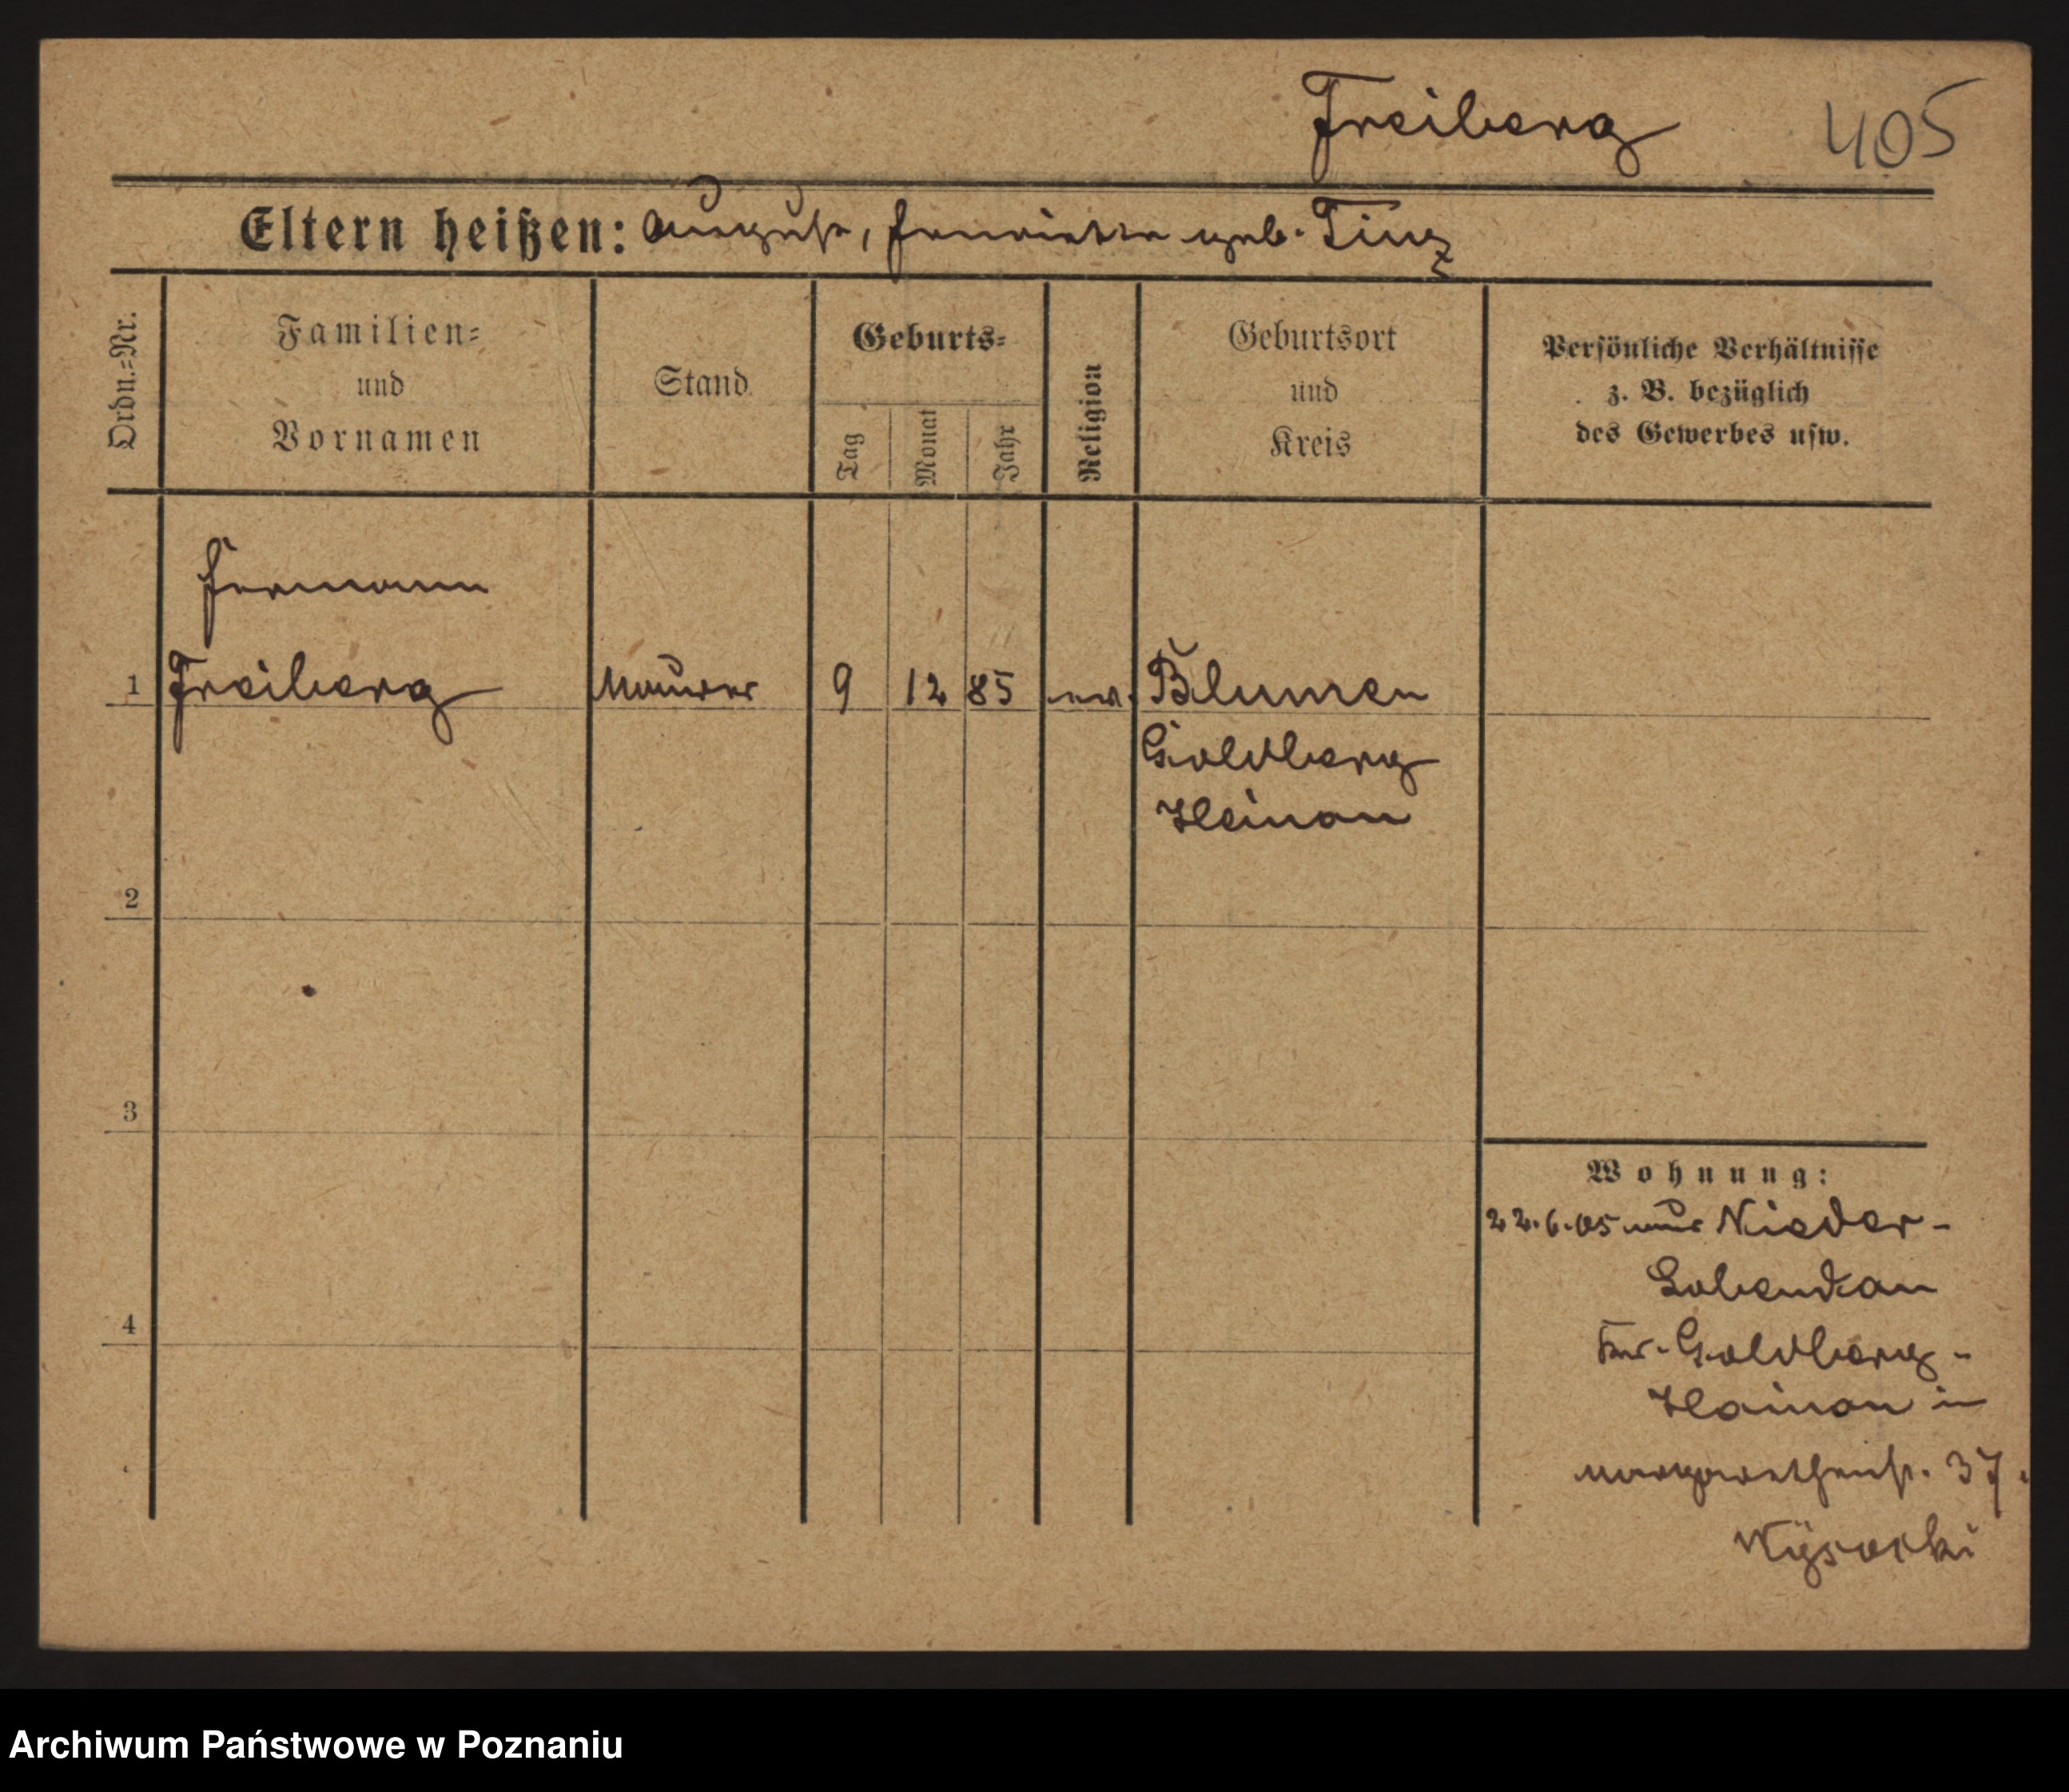 Freiberg 405
Eltern heißen: August, Henriette geb. Tinz
Ordn.=Nr.
Familien=
und
Vornamen
Stand
Geburts=
Tag
Monat
Jahr
Religion
Geburtsort
und
Kreis
Persönliche Verhältnisse
z. B. bezüglich
des Gewerbes usw.
Hermann
1 Freiberg Maurer 9 12 85 ev. Blumen
Goldberg
Hainau
2
3
4
Wohnung:
22.6.05 aus Nieder-
Lobendau
Kr. Goldberg-
Hainau in
Margarethenstr. 37.
Wÿsocki
Archiwum Państwowe w Poznaniu